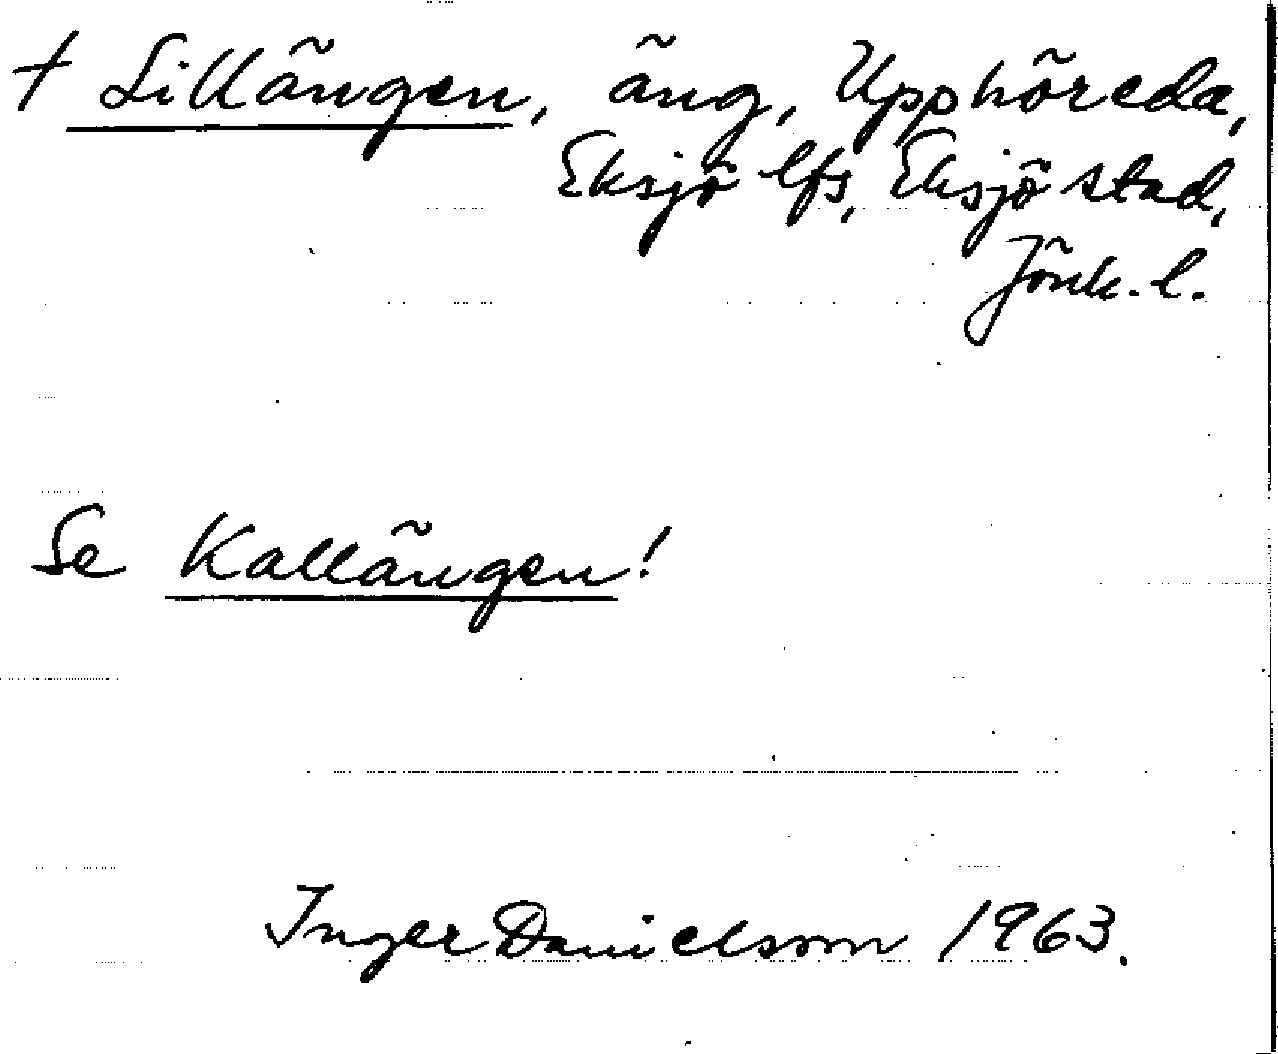 † Lillängen, äng, Upphöreda,
Eksjö lfs, Eksjö stad,
Jönk. l.
Se Kallängen!
Inger Danielsson 1963.